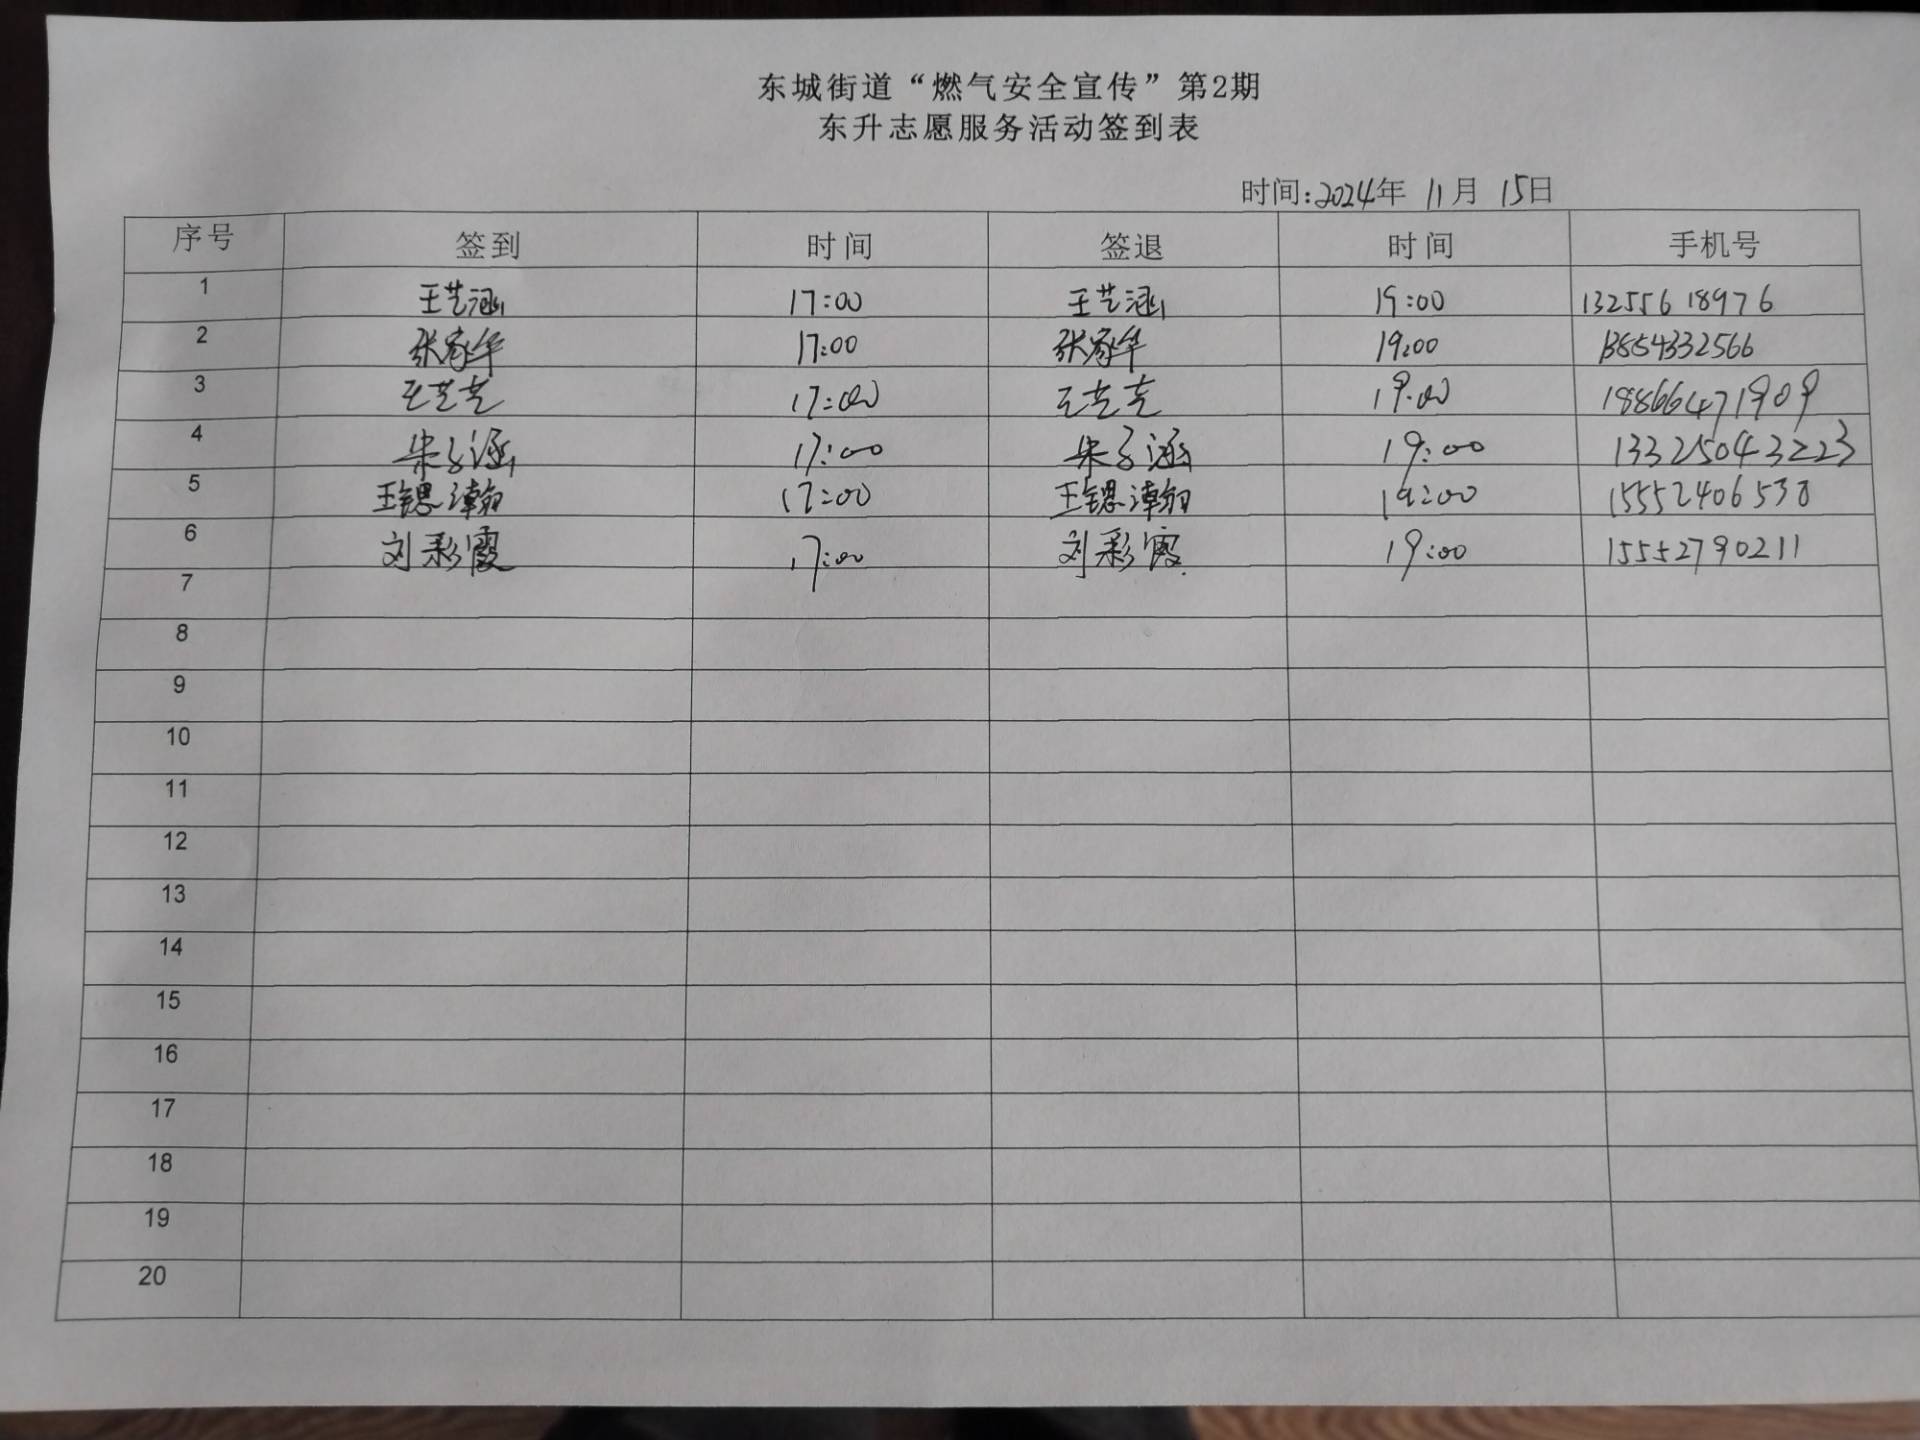 东城街道“燃气安全宣传”第2期
东升志愿服务活动签到表
时间:2024年 11月 15日
序号 签到 时间 签退 时间 手机号
1 王艺涵 17:00 王艺涵 19:00 13255618976
2 张家华 17:00 张家华 19:00 13854332566
3 王芝芝 17:00 19:00 18866471909
4 朱子涵 17:00 朱子涵 19:00 13325043223
5 王锶瀚 17:00 王锶瀚 19:00 15552406538
6 刘彩霞 17:00 刘彩霞 19:00 15552790211
7
8
9
10
11
12
13
14
15
16
17
18
19
20